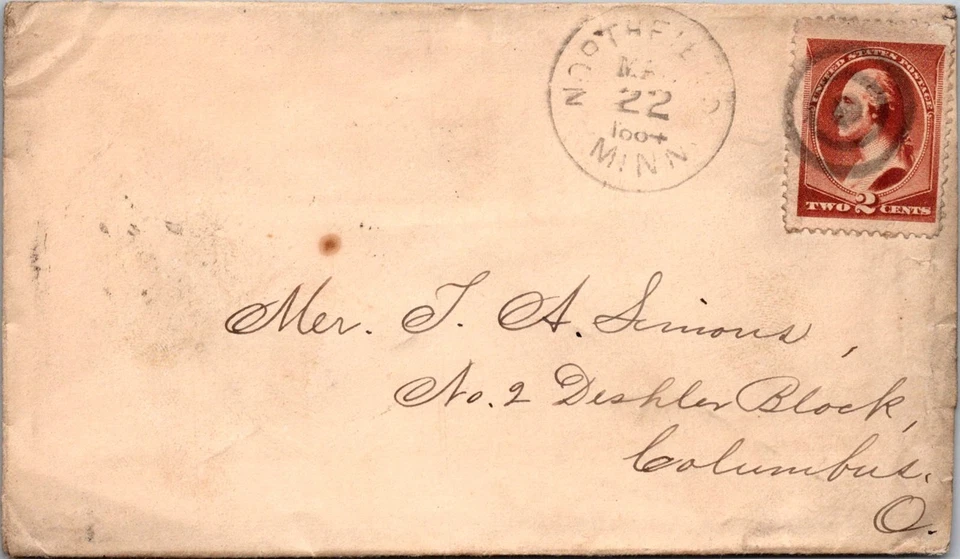 NORTHFIELD
MAR
22
1884
MINN.
UNITED STATES POSTAGE
TWO 2 CENTS
Mer. T. A. Simons,
No. 2 Deshler Block,
Columbus.
O.